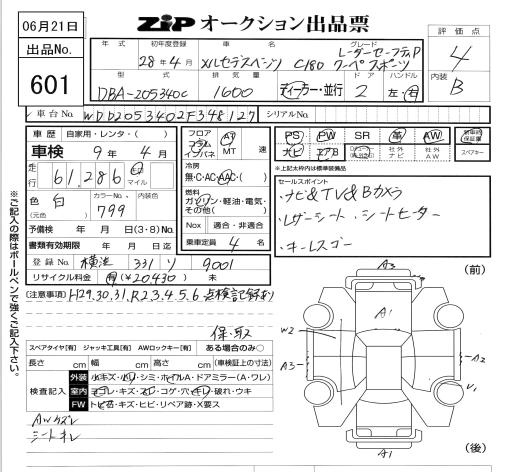 06月21日
出品No.
601
ZIP オークション出品票
評価点
4
内装
B
年式 初年度登録 車名 グレード
28年4月 メルセデスベンツ C180 クーペスポーツ レーダーセーフティP
型式 排気量 ドア ハンドル
DBA-205340C 1600 ディーラー・並行 2 左・右
車台No. WDD2053402F348127 シリアルNo.
車歴 自家用・レンタ・( )
車検 9年4月
走行 61,286 km マイル
色 白 (元色) カラーNo. 799 内装色
予備検 年 月 日(3・8)No.
書類有効期限 年 月 日迄
登録No. 横浜 331 ソ 9001
リサイクル料金 有(¥20,430) 未
フロア コラム インパネ AT MT 速
冷房 無・C・AC・AAC・( )
燃料 ガソリン・軽油・電気・その他( )
Nox 適合・非適合
乗車定員 4 名
PS PW SR 革 AW 新車時保証書
ナビ エアB 社外ナビ 社外AW スペアキー
※上記太枠内は装備品
セールスポイント
・ナビ&TV&Bカメラ
・レザーシート ・シートヒーター
・キーレスゴー
(注意事項) H29.30.31.R2.3.4.5.6 点検記録有り
保・取
スペアタイヤ[有] ジャッキ工具[有] AWロックキー[有] ある場合のみ○
長さ cm 幅 cm 高さ cm (車検証上の寸法)
検査記入
外装 小キズ・小凹・シミ・ホイルA・ドアミラー(A・ワレ)
室内 ヨゴレ・キズ・スレ・コゲ・穴・キレ・破れ・ウキ
FW トビ石・キズ・ヒビ・リペア跡・X要ス
AWカズレ
シートキレ
※ご記入の際はボールペンで強くご記入下さい。
(前)
A3
A1
W2
A3
A2
V1
A1
(後)